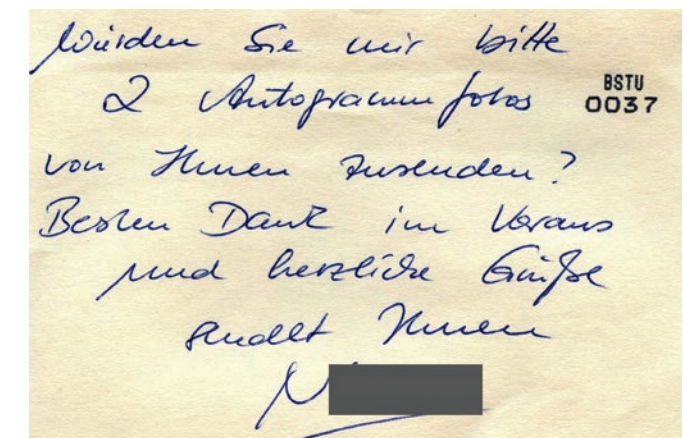 Würden Sie mir bitte
2 Autogrammfotos
BSTU
0037
von Ihnen zusenden?
Besten Dank im Voraus
und herzliche Grüße
sendet Ihnen
N